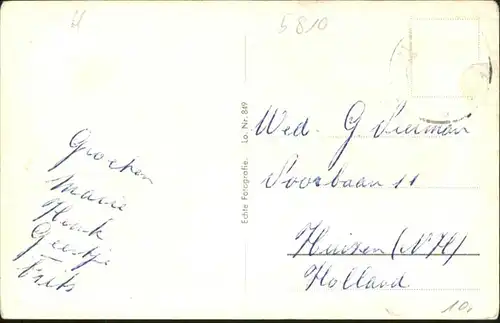 5810
Echte Fotografie. Lo. Nr. 849
Groeten
Marie
Henk
Geertje
Frits
Wed. G
11
Huizen (NH)
Holland
10,